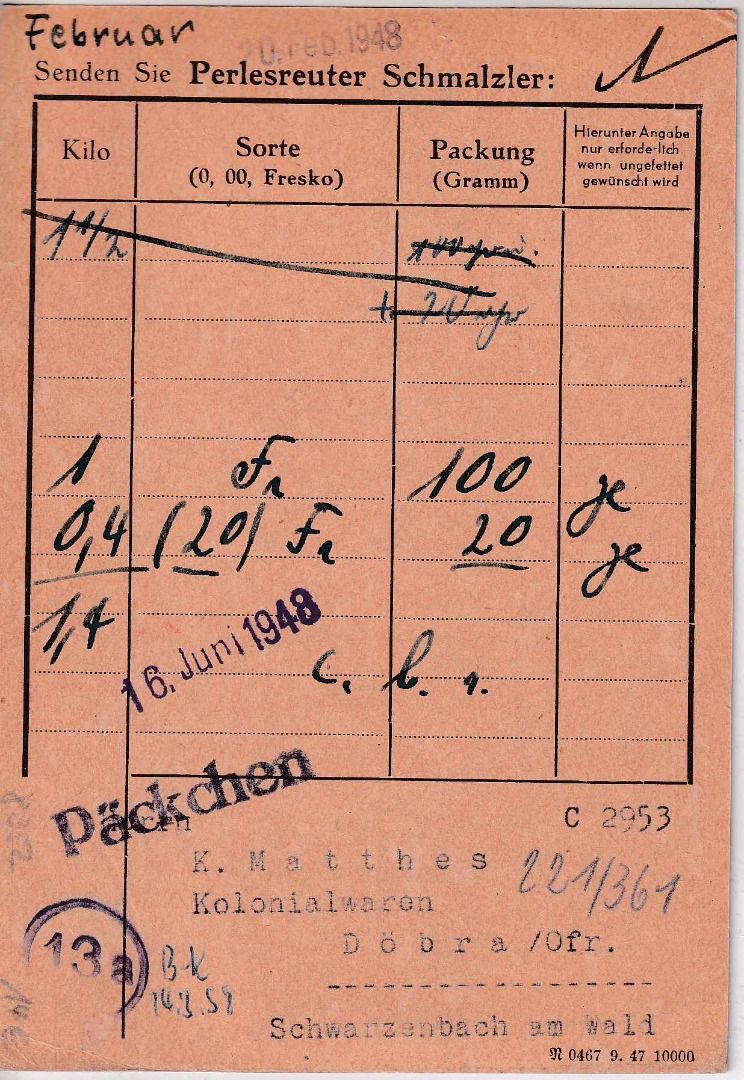 Februar
20. Feb. 1948
Senden Sie Perlesreuter Schmalzler:
Kilo
Sorte
(0, 00, Fresko)
Packung
(Gramm)
Hierunter Angabe
nur erforde-lich
wenn ungefettet
gewünscht wird
1 1/2
1 Fr 100
0,4 (20) Fr 20
1,4
16. Juni 1948
Päckchen
Herrn
C 2953
K. Matthes
221/361
Kolonialwaren
Döbra/Ofr.
13a
Schwarzenbach am Wald
N 0467 9. 47 10000